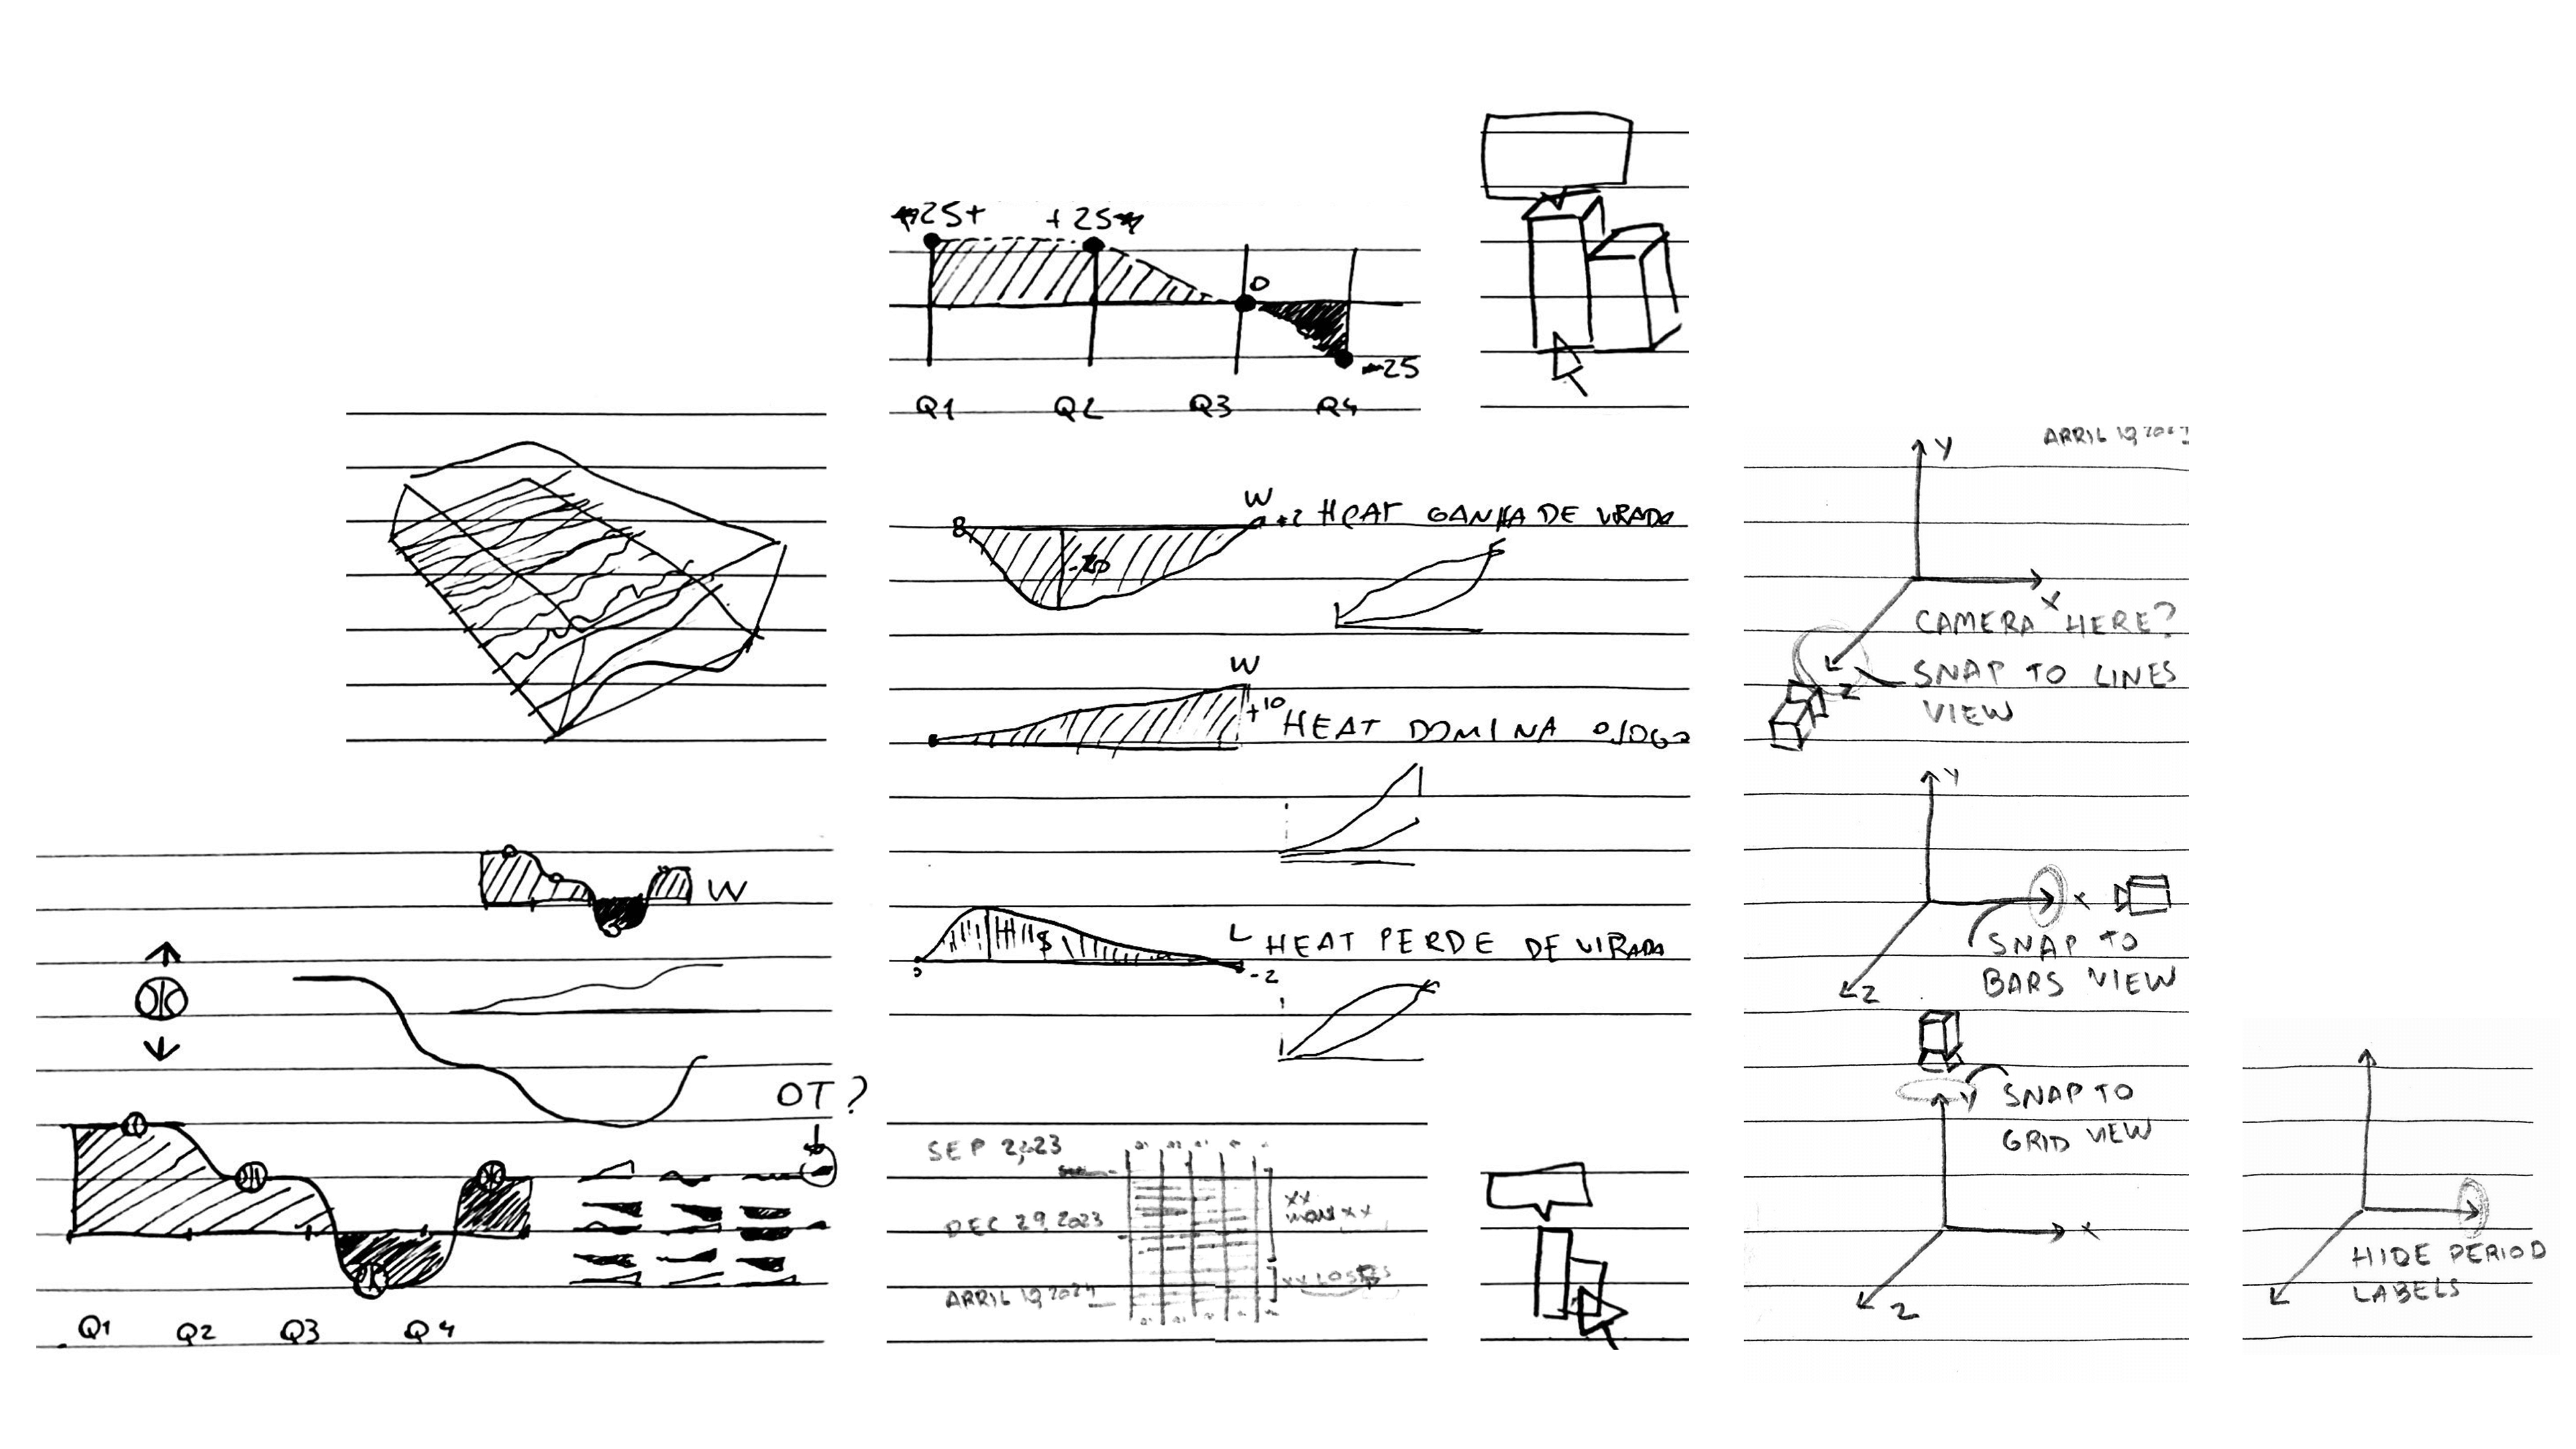 25+
+25
0
-25
Q1
Q2
Q3
Q4
W
+2 HEAT GANHA DE VIRADA
-20
W
+10
HEAT DOMINA O JOGO
L
HEAT PERDE DE VIRADA
-2
W
OT?
Q1
Q2
Q3
Q4
SEP 2,23
DEC 29, 2023
APRIL 19, 2024
XX
XX LOSSES
APRIL 19,
Y
X
CAMERA HERE?
Z
SNAP TO LINES
VIEW
Y
X
SNAP TO
BARS VIEW
Z
Y
SNAP TO
GRID VIEW
X
Z
HIDE PERIOD
LABELS